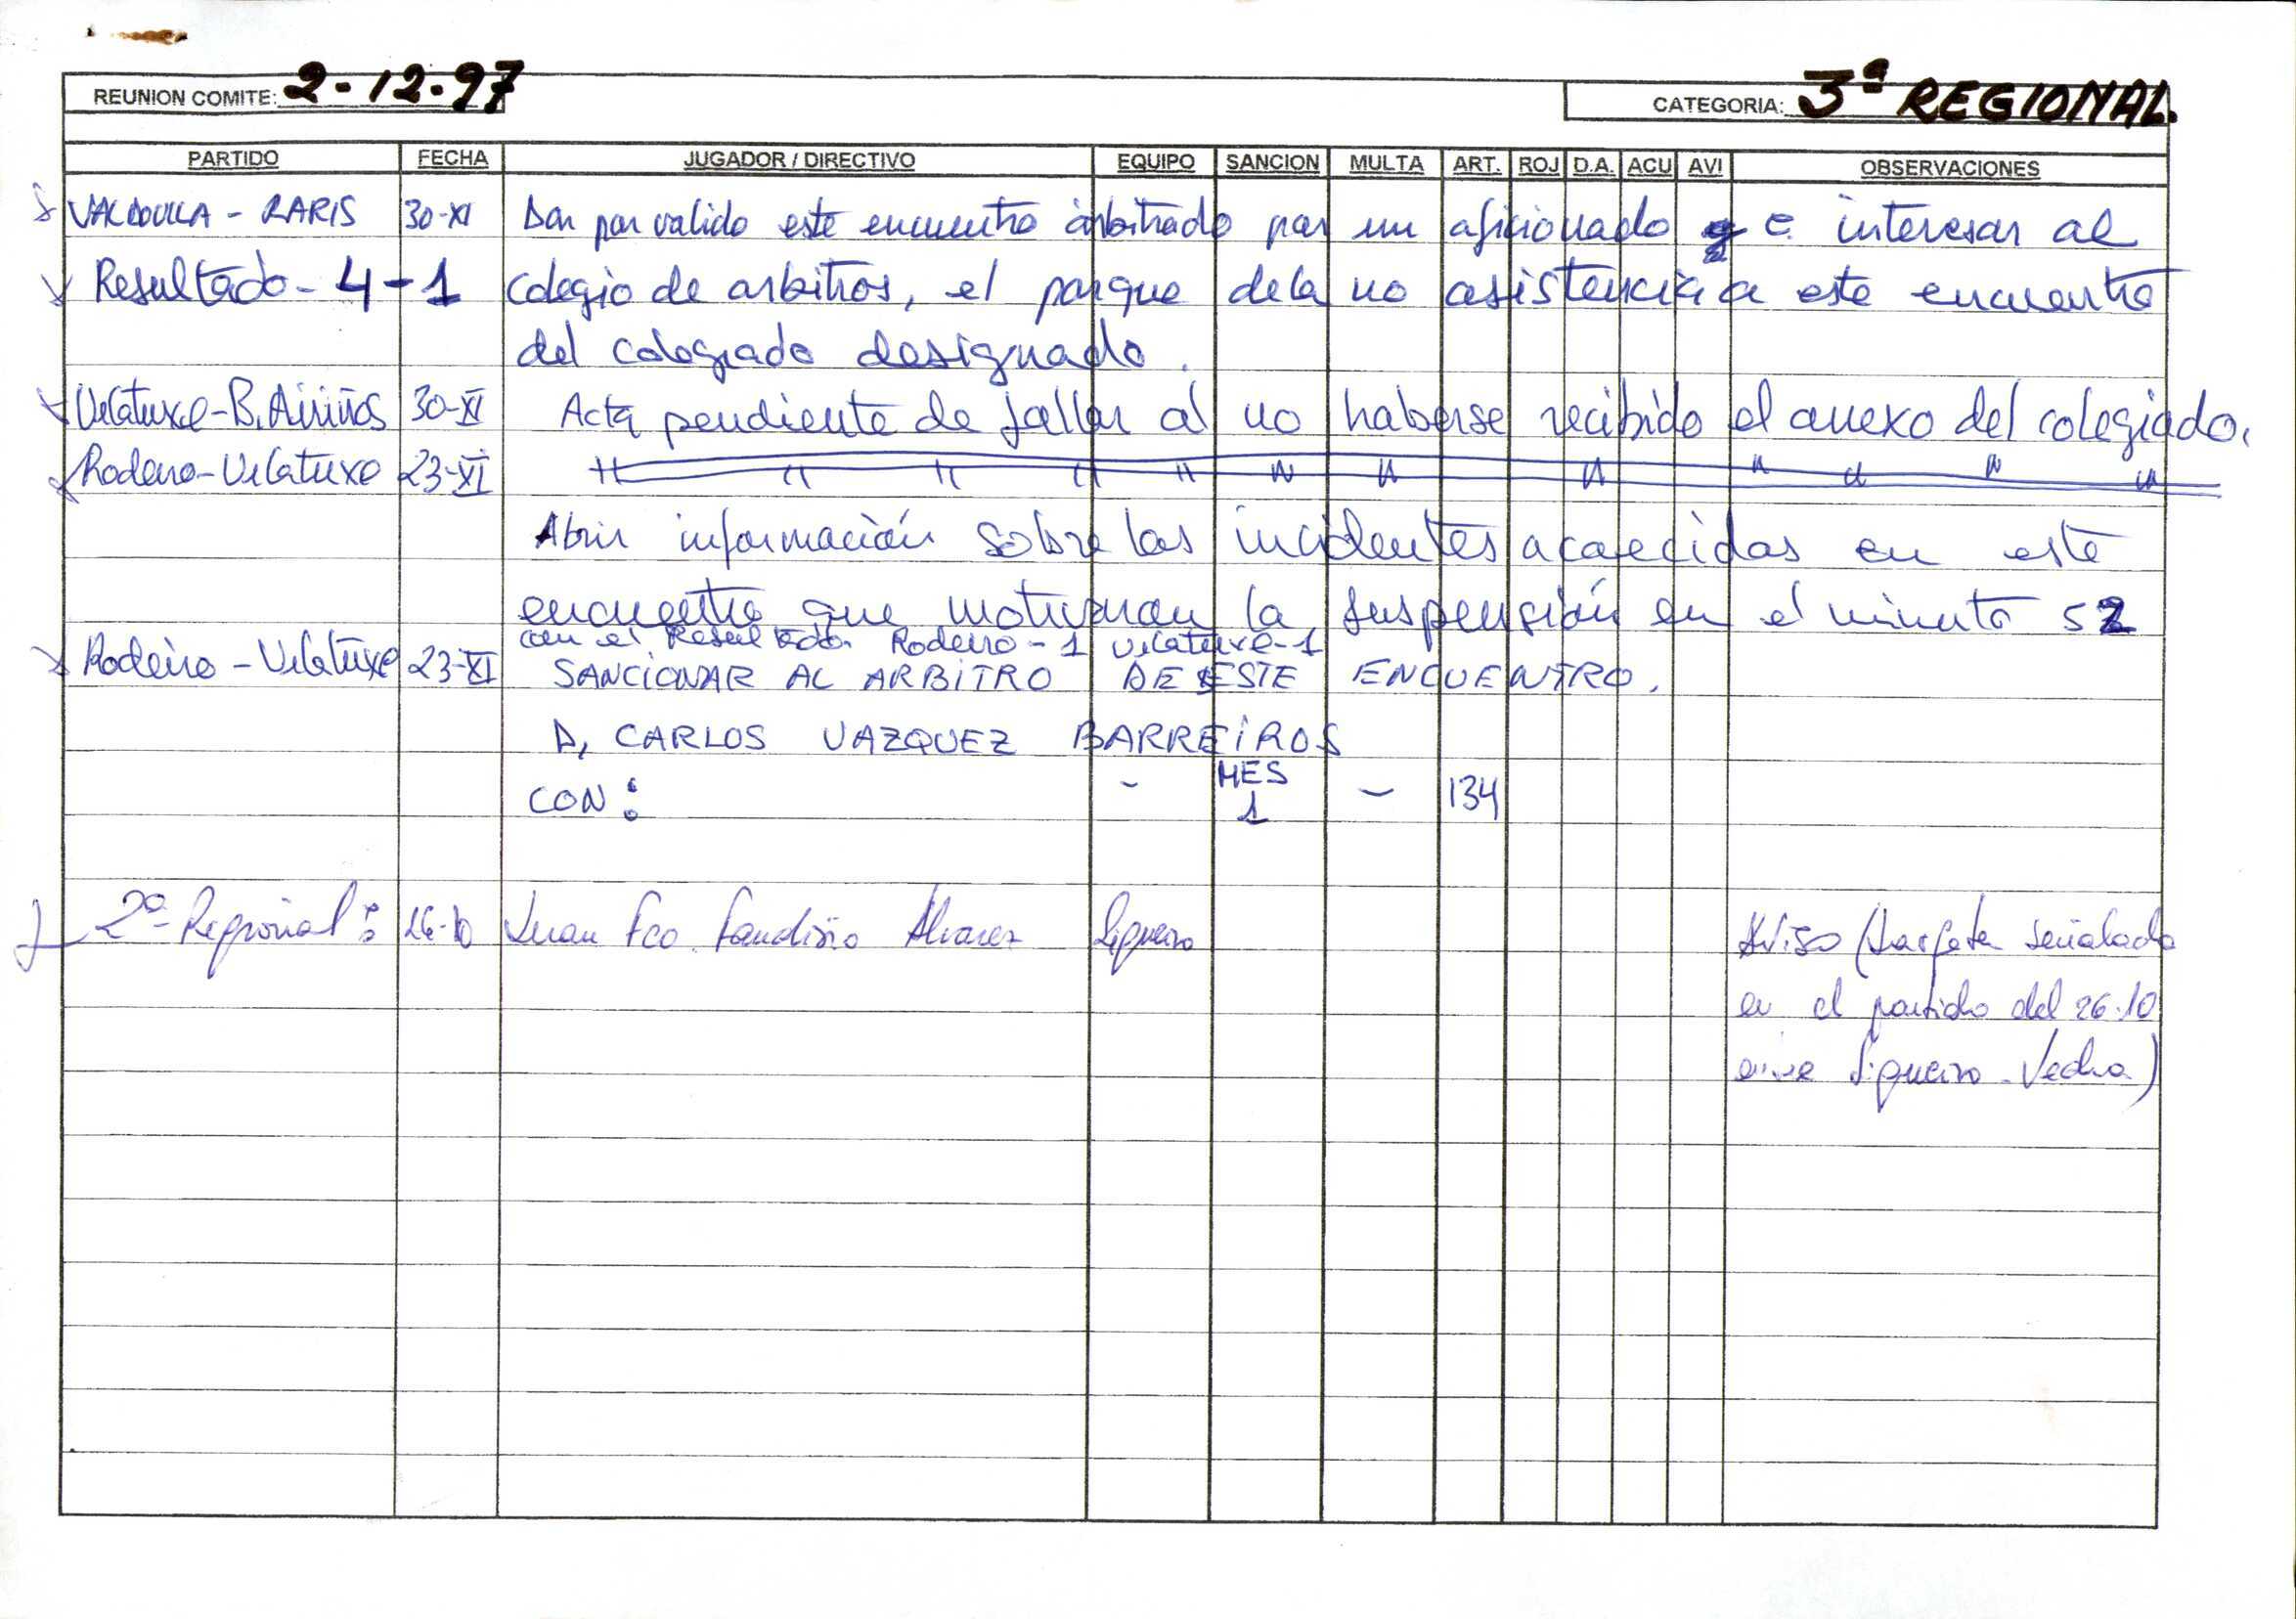 REUNION COMITE: 2-12-97
CATEGORIA: 3ª REGIONAL.
PARTIDO FECHA JUGADOR / DIRECTIVO EQUIPO SANCION MULTA ART. ROJ D.A. ACU AVI OBSERVACIONES
- RARIS 30-XI Dar por valido este encuentro arbitrado por un aficionado e interesar al
Resultado - 4-1 colegio de arbitros, el porque de la no asistencia a este encuentro
del colegiado designado.
Vilatuxe-B. Airiños 30-XI Acta pendiente de fallar al no haberse recibido el anexo del colegiado.
Rodeiro-Vilatuxe 23-XI " " " " " " " " " " " "
Abrir información sobre los incidentes acaecidos en este
encuentro que motivaron la suspensión en el minuto 52
con el Resultado Rodeiro-1 Vilatuxe-1
Rodeiro - Vilatuxe 23-XI SANCIONAR AL ARBITRO DE ESTE ENCUENTRO.
D, CARLOS VAZQUEZ BARREIROS
CON: - MES 1 - 134
2ª Regional: 26-10 Juan Fco. Fandiño Alvarez Sigueiro Aviso (tarjeta señalada
en el partido del 26.10
entre Sigueiro - Vedra)